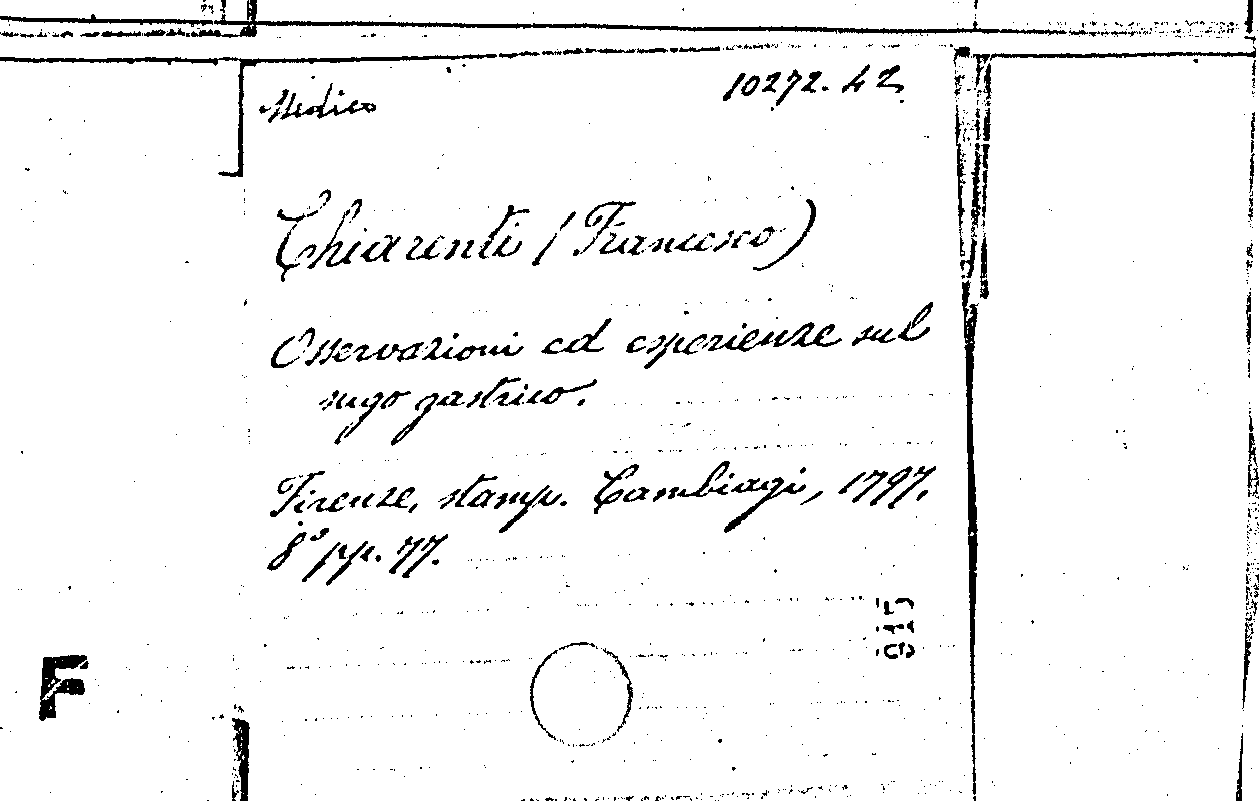 Medico
10272.42
Chiarenti (Francesco)
Osservazioni ed esperienze sul
sugo gastrico.
Firenze, stamp. Cambiagi, 1797.
8° pp. 77.
F